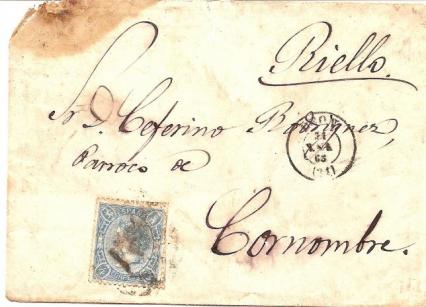 Riello.
Sr. D. Ceferino Rodriguez,
Parroco de
Cornombre.
65